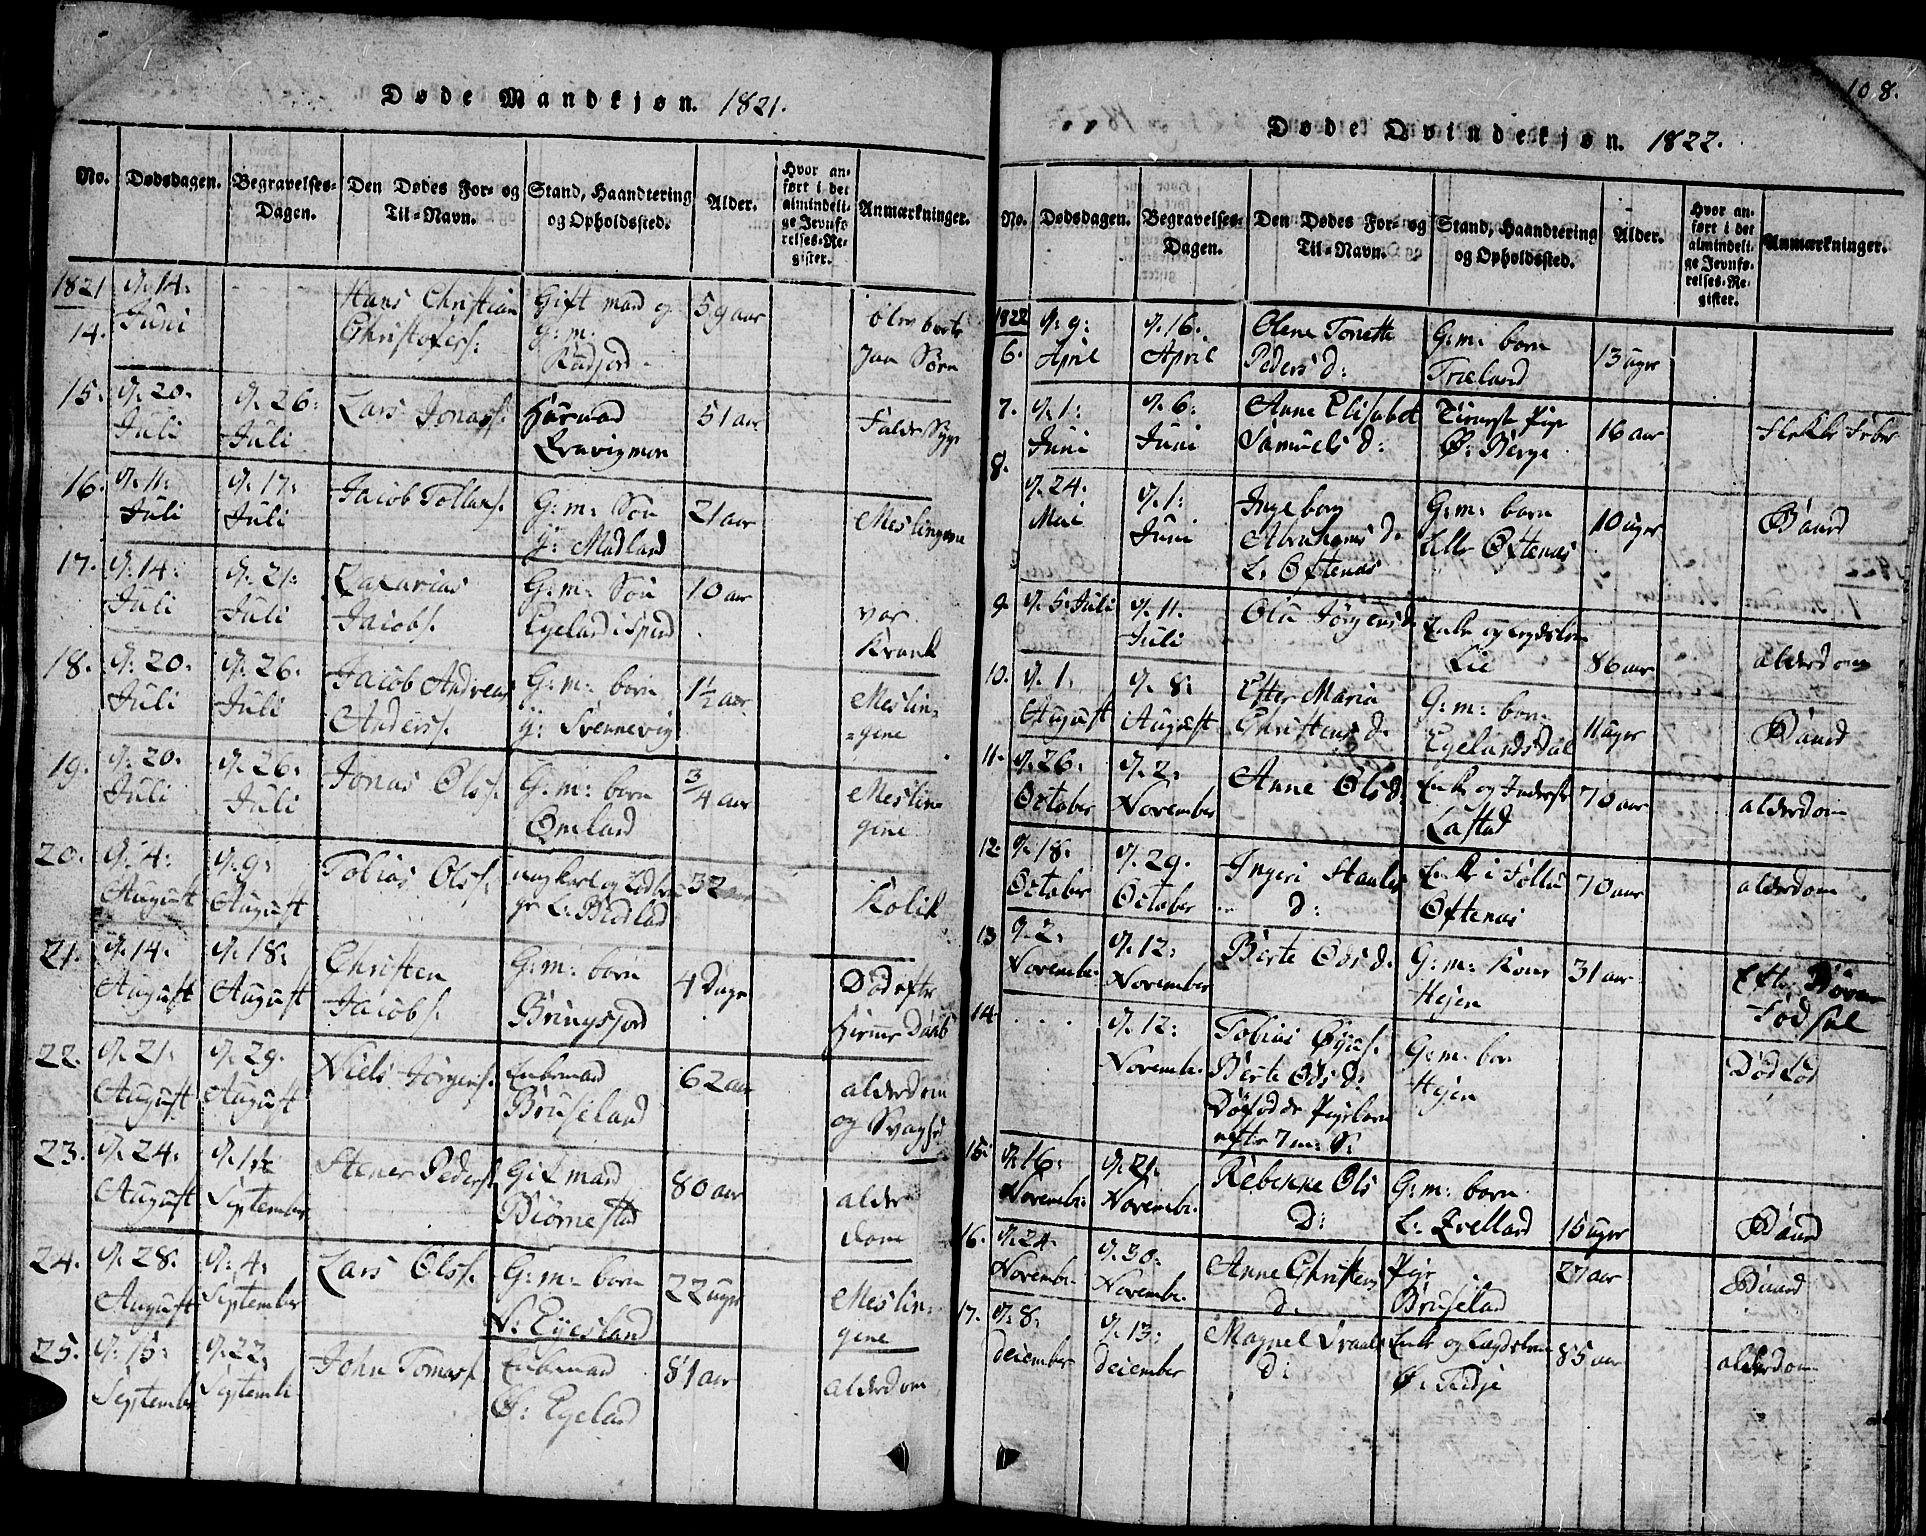 Døde Mandkjøn. 1821.
No.
Dødsdagen.
Begravelses-
Dagen.
Den Dødes For- og
Til-Navn.
Stand, Haandtering
og Opholdssted.
Alder.
Hvor an-
ført i det
almindeli-
ge Jevnfø-
relses-Re-
gister.
Anmærkninger.
1821
14.
d. 14:
Juni
Hans Christian
Christofers:
Gift mand og
G: m:
59 aar
blev borte
15.
d. 20.
Juli
d. 26:
Juli
Lars Jonass:
51 aar
Falde Syge
16.
d. 11:
Juli
d. 17:
Juli
Jacob Tollas.
G: m: Søn
y: Madland
21 aar
Meslingene
17.
d. 14:
Juli
d. 21:
Juli
Zakarias
Jacobs.
G: m: Søn
Egeland i Spind
10 aar
var
Krank
18.
d. 20.
Juli
d. 26.
Juli
Jacob Andreas
Anders.
G: m: børn
y: Svennevig
1½ aar
Meslin=
=gene
19.
d. 20.
Juli
d. 26.
Juli
Jonas Ols.
G: m: børn
Omland
3/4 aar
Meslin=
gene
20.
d. 4:
August
d. 9:
August
Tobias Ols.
32
Kolik
21.
d. 14:
August
d. 18:
August
Christen
Jacobs.
G: m: børn
Bringsjord
4 Dage
Død efter
Hieme Daab
22.
d. 21.
August
d. 29.
August
Niels Jørgens.
Enkemand
Bruseland
62 aar
alderdom
og Svaghed
23.
d. 24:
August
d. 1ste
September
Stener Peders.
Gift mand
Biørnestad
80 aar
alder
dom
24.
d. 28.
August
d. 4.
September
Lars Ols.
G: m: børn
N: Eyesland
22 uger
Meslin=
gene
25.
d. 15:
September
d. 22.
Septemb:
John Tomas.
Enkemand
Ø: Egeland
81 aar
alderdom
108.
Døde Qvindekjøn. 1822.
No.
Dødsdagen.
Begravelses-
Dagen.
Den Dødes For- og
Til-Navn.
Stand, Haandtering
og Opholdssted.
Alder.
Hvor an-
ført i det
almindeli-
ge Jevnfø-
relses-Re-
gister.
Anmærkninger.
1822
6.
d. 9:
April
d. 16.
April
Olene Tonette
Peders d:
G: m: børn
Træland
13 uger
7.
d. 1:
Juni
d. 6:
Juni
Anne Elisabet
Samuels d:
Tieneste Pige
Ø: Berge
16 aar
Flekke Feber
8.
d. 24:
Mai
d. 1:
Juni
Ingeborg
Abrahams d.
L: Oftenas
G: m: børn
Lille Oftenas
10 uger
Baard
9.
d. 5. Juli
d. 11.
Juli
Ola Jørgens d.
Enke og Lægdslem
Lie
86 aar
alderdom
10.
d. 1.
August
d. 8:
August
Ester Maria
Christens d.
G: m: børn
Egelandsdal
11 uger
Baard
11.
d. 26:
October
d. 2:
November
Anne Ols d:
Enke og Inderste
Lastad
70 aar
alderdom
12.
d. 18.
October
d. 29.
October
Ingeri
d:
Enke i Follu
Oftenas
70 aar
alderdom
13
d. 2.
Novemb.
d. 12:
November
Berte Ods d.
G: m: Kone
Hejen
31 aar
Efter Børne
Fødsel
14.
d. 12:
Novemb.
Tobias
Berte Ods d.
Døfødde Pigebarn
efter 7 m: S:
G: m: børn
Hejen
Dødfød
15.
d. 16.
Novemb.
d. 21.
Novemb.
Rebekke Ols
D:
G: m: børn
L: Qvelland
15 uger
Baard
16.
d. 24.
Novemb.
d. 30.
Novemb.
Anne Christens
d.
Pige
Bruseland
27 aar
Baard
17.
d. 8.
december
d. 13:
december
Magnel
D:
Enke og Lægdslem
Ø: Tiedje
85 aar
alderdom